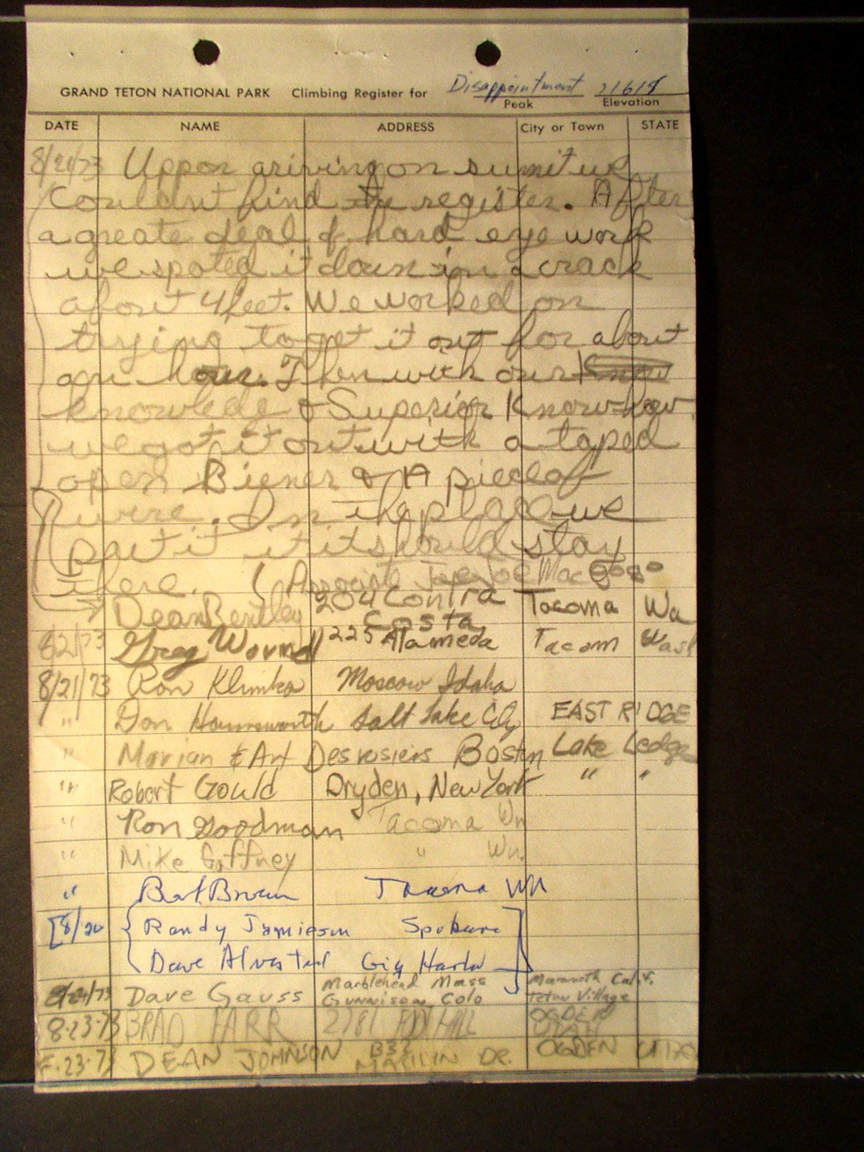 GRAND TETON NATIONAL PARK Climbing Register for Disappointment
Peak Elevation
DATE NAME ADDRESS City or Town STATE
8/21/73 Uppon ariving on sumit we
couldnt find the register. After
a greate deal of hard eye work
we spoted it down in a crack
about 4 feet. We worked on
trying to get it out for about
an hour. Then with our
knowlede & Superior Know-how
we got it out with a taped
open Biener & A piece of
wire. In the place we
put it it should stay
there. ( Associate Joe Mac
Dean Bentley 204 Contra Costa Tacoma Wa
8/21/73 Greg 225 Alameda Tacom Wash
8/21/73 Ron Klimka Moscow Idaho
" Don Salt Lake City EAST RIDGE
" Marian & Art Desrosiers Boston Lake Ledge
" Robert Gould Dryden, New York " "
" Ron Goodman Tacoma Wn
" Mike Gaffney " Wn.
" Brown Tacoma WN
[8/20 Randy Jamieson Spokane
Dave Gig Harbor
8/22/73 Dave Gauss Marblehead Mass Mammoth Calif.
Gunnison, Colo Teton Village
8-23-73 BRAD FARR 2781 FOOTHILL OGDEN UTAH
8-23-73 DEAN JOHNSON 832 MARILIN DR. OGDEN UTAH